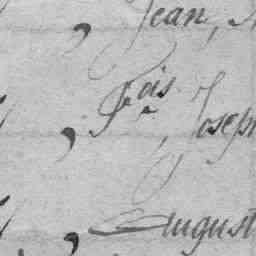 , Jean,
, F.ois, Joseph
, August